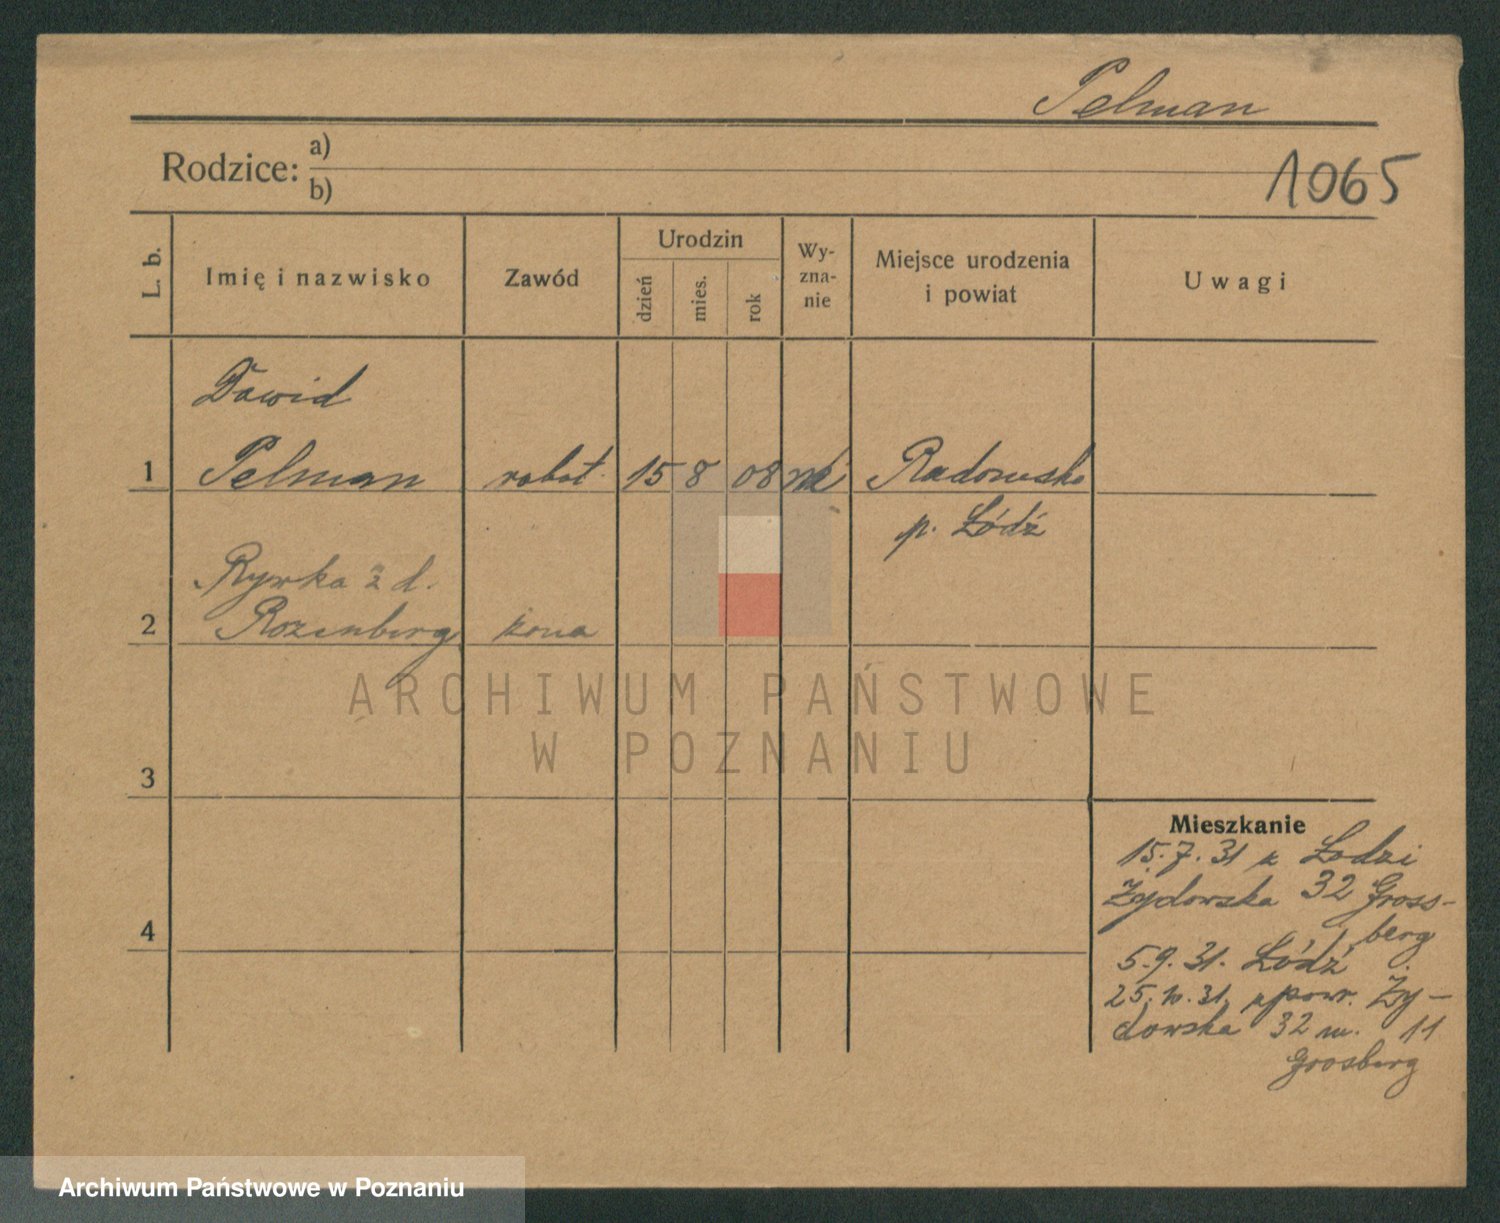 Pelman
Rodzice: a)
b)
1065
L. b.
Imię i nazwisko
Zawód
Urodzin
dzień
mies.
rok
Wy-
zna-
nie
Miejsce urodzenia
i powiat
Uwagi
Dawid
1 Pelman robot. 15 8 08 Radomsko
p. Łódź
Rywka z d.
2 Rozenberg żona
ARCHIWUM PAŃSTWOWE
W POZNANIU
3
4
Mieszkanie
15.7.31 z Łodzi
Żydowska 32 Gross-
berg
5.9.31. Łódź
25.10.31. z powr. Ży-
dowska 32 m. 11
Grosberg
Archiwum Państwowe w Poznaniu